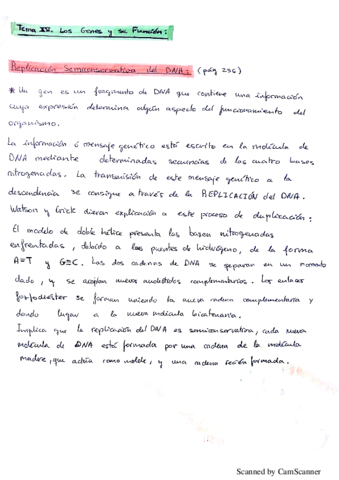 Tema IV. Los Genes y su Función:
Replicación Semiconservativa del DNA: (pág 236)
* Un gen es un fragmento de DNA que contiene una información
cuya expresión determina algún aspecto del funcionamiento del
organismo.
La información ó mensaje genético está escrito en la molécula de
DNA mediante determinadas secuencias de las cuatro bases
nitrogenadas. La transmisión de este mensaje genético a la
descendencia se consigue a través de la REPLICACIÓN del DNA.
Watson y Crick dieron explicación a este proceso de duplicación:
El modelo de doble hélice presenta las bases nitrogenadas
enfrentadas, debido a los puentes de hidrógeno, de la forma
A=T y G≡C. Las dos cadenas de DNA se separan en un momento
dado, y se acoplan nuevos nucleótidos complementarios. Los enlaces
fosfodiéster se forman uniendo la nueva cadena complementaria y
dando lugar a la nueva molécula bicatenaria.
Implica que la replicación del DNA es semiconservativa, cada nueva
molécula de DNA está formada por una cadena de la molécula
madre, que actúa como molde, y una cadena recién formada.
Scanned by CamScanner